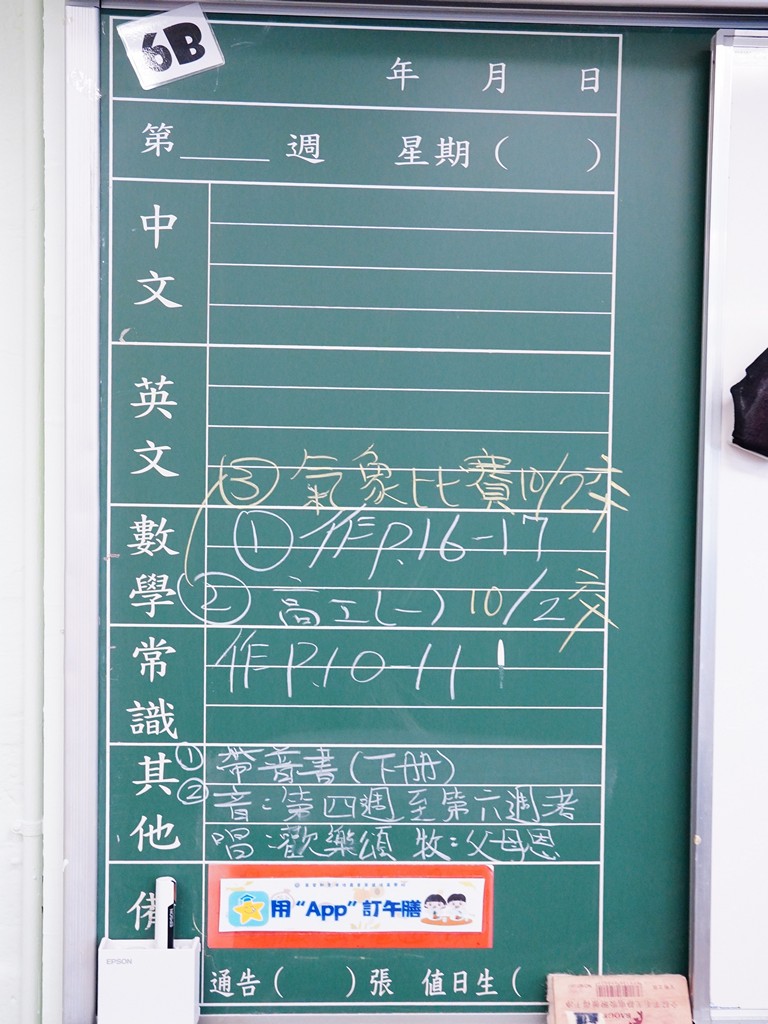 6B
年 月 日
第____週 星期( )
中文
英文
③ 氣象比賽10/2交
數學
① 作P.16-17
② 高工(一) 10/2交
常識
作P.10-11
其他
① 帶音書(下冊)
② 音:第四週至第六週考
唱:歡樂頌 牧:父母恩
備
用“App”訂午膳
EPSON
通告( )張 值日生(